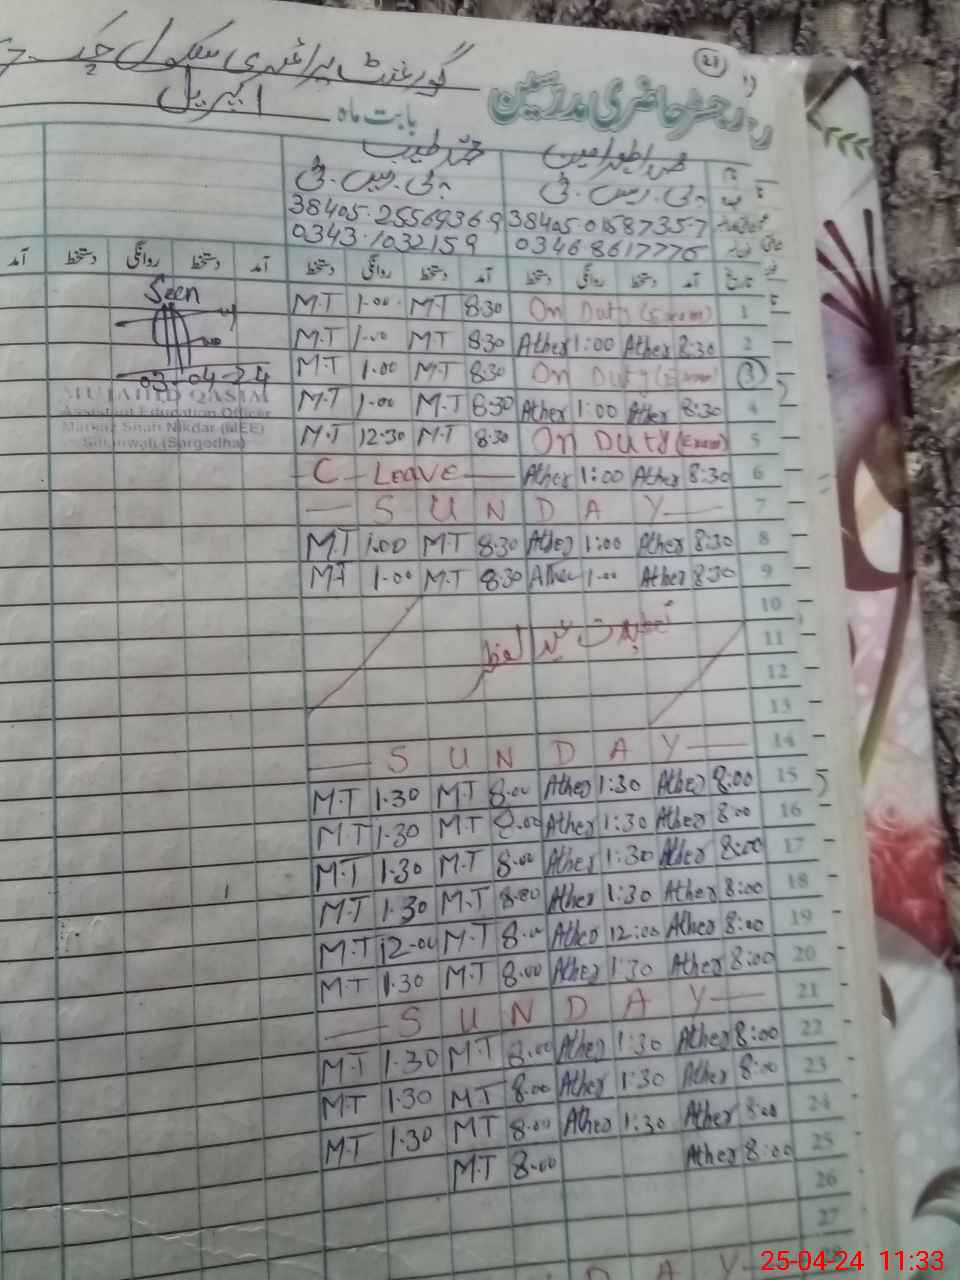 27
گورنمنٹ پرائمری سکول چک
رجسٹر حاضری مدرسین
بابت ماہ اپریل
محمد اطہر امین محمد طیب
پی.ایس.ٹی پی.ایس.ٹی
38405.2556936.9 38405.0158735.7
0343.1032159 03468617776
آمد دستخط روانگی دستخط آمد دستخط روانگی دستخط آمد دستخط روانگی دستخط آمد
Seen
03-04-24
MUJAHID QASIM
Assistant Education Officer
Markaz Shah Nikdar (MEE)
Sillanwali (Sargodha)
M.T 1.00 M.T 8.30 On Duty (Exam) 1
M.T 1.00 M.T 8.30 Ather 1:00 Ather 8:30 2
M.T 1.00 M.T 8.30 On Duty (Exam) 3
M.T 1.00 M.T 8.30 Ather 1:00 Ather 8:30 4
M.T 12.30 M.T 8.30 On Duty (Exam) 5
C - Leave Ather 1:00 Ather 8:30 6
SUNDAY 7
M.T 1.00 M.T 8.30 Ather 1:00 Ather 8:30 8
M.T 1.00 M.T 8.30 Ather 1.00 Ather 8:30 9
10
تعطیلات عید الفطر 11
12
13
SUNDAY 14
M.T 1.30 M.T 8.00 Ather 1:30 Ather 8:00 15
M.T 1.30 M.T 8.00 Ather 1:30 Ather 8:00 16
M.T 1.30 M.T 8.00 Ather 1:30 Ather 8:00 17
M.T 1.30 M.T 8.00 Ather 1:30 Ather 8:00 18
M.T 12.00 M.T 8.00 Ather 12:00 Ather 8:00 19
M.T 1.30 M.T 8.00 Ather 1:30 Ather 8:00 20
SUNDAY 21
M.T 1.30 M.T 8.00 Ather 1:30 Ather 8:00 22
M.T 1.30 M.T 8.00 Ather 1:30 Ather 8:00 23
M.T 1.30 M.T 8.00 Ather 1:30 Ather 8:00 24
M.T 8.00 Ather 8:00 25
26
27
DAY 28
25-04-24 11:33